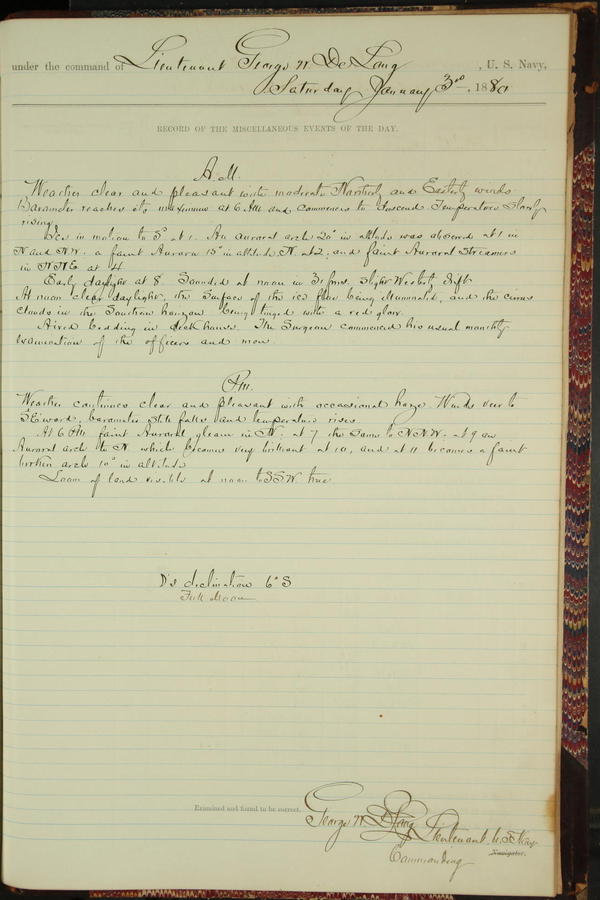 under the command of Lieutenant George W. De Long, U. S. Navy,
Saturday January 3rd, 1880
RECORD OF THE MISCELLANEOUS EVENTS OF THE DAY.
A.M.
Weather clear and pleasant with moderate Northerly and Easterly winds
Barometer reaches its maximum at 6 AM and commences to descend Temperature Slowly
rising.
Ice in motion to S° at 1. An auroral arch 20° in altitude was observed at 1 in
N and NW: a faint Aurora 15° in altitude N. at 2; and faint Auroral Streamers
in NNE at 4
Early daylight at 8. Sounded at noon in 31 fms. Slight Westerly drift
At noon clear daylight, the surface of the ice floes being illuminated, and the cirrus
clouds in the Southern horizon being tinged with a red glow.
Aired bedding in deck house. The Surgeon commenced his usual monthly
examination of the officers and men.
P.M.
Weather continues clear and pleasant with occasional haze. Winds veer to
SEward; barometer still falls and temperature rises
At 6 PM faint Auroral gleam in N; at 7 the same to NNW. at 9 an
Auroral arch to N. which becomes very brilliant at 10, and at 11 becomes a faint
broken arch 10° in altitude
Loom of land visible at noon to SSW. true
D's declination 6° S
Full Moon
Examined and found to be correct.
George W. De Long Lieutenant U.S. Navy
Navigator.
Commanding